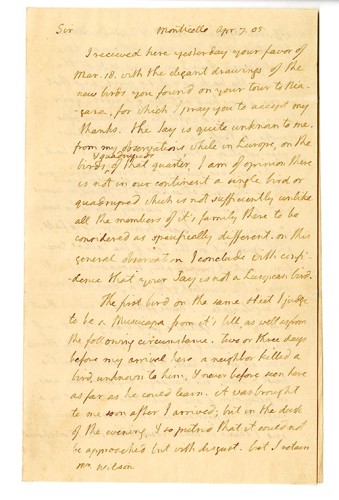 Sir Monticello Apr. 7. 05
I recieved here yesterday your favor of
Mar. 18. with the elegant drawings of the
new birds you found on your tour to Nia-
gara, for which I pray you to accept my
thanks. the Jay is quite unknown to me.
from my observations while in Europe, on the
birds & quadrupeds of that quarter, I am of opinion there
is not in our continent a single bird or
quadruped which is not sufficiently unlike
all the members of it's family there to be
considered as specifically different. on this
general observation I conclude with confi-
dence that your Jay is not a European bird.
The first bird on the same sheet I judge
to be a Muscicapa from it's bill, as well as from
the following circumstance. two or three days
before my arrival here a neighbor killed a
bird, unknown to him, & never before seen here
as far as he could learn. it was brought
to me soon after I arrived; but in the dusk
of the evening, & so putrid that it could not
be approached but with disgust. but I retain
mr Wilson